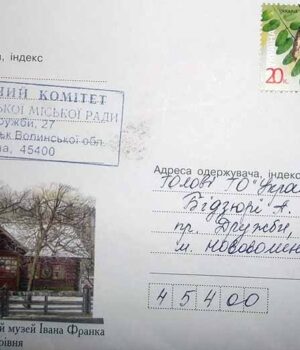 20к.
а, індекс
НИЙ КОМІТЕТ
ЬКОЇ МІСЬКОЇ РАДИ
ружби, 27
ськ Волинської обл.
на, 45400
Адреса одержувача, індекс
Голові ГО "Укра
Бідзюрі А.
пр. Дружби,
м. Нововолин
45400
й музей Івана Франка
рівня